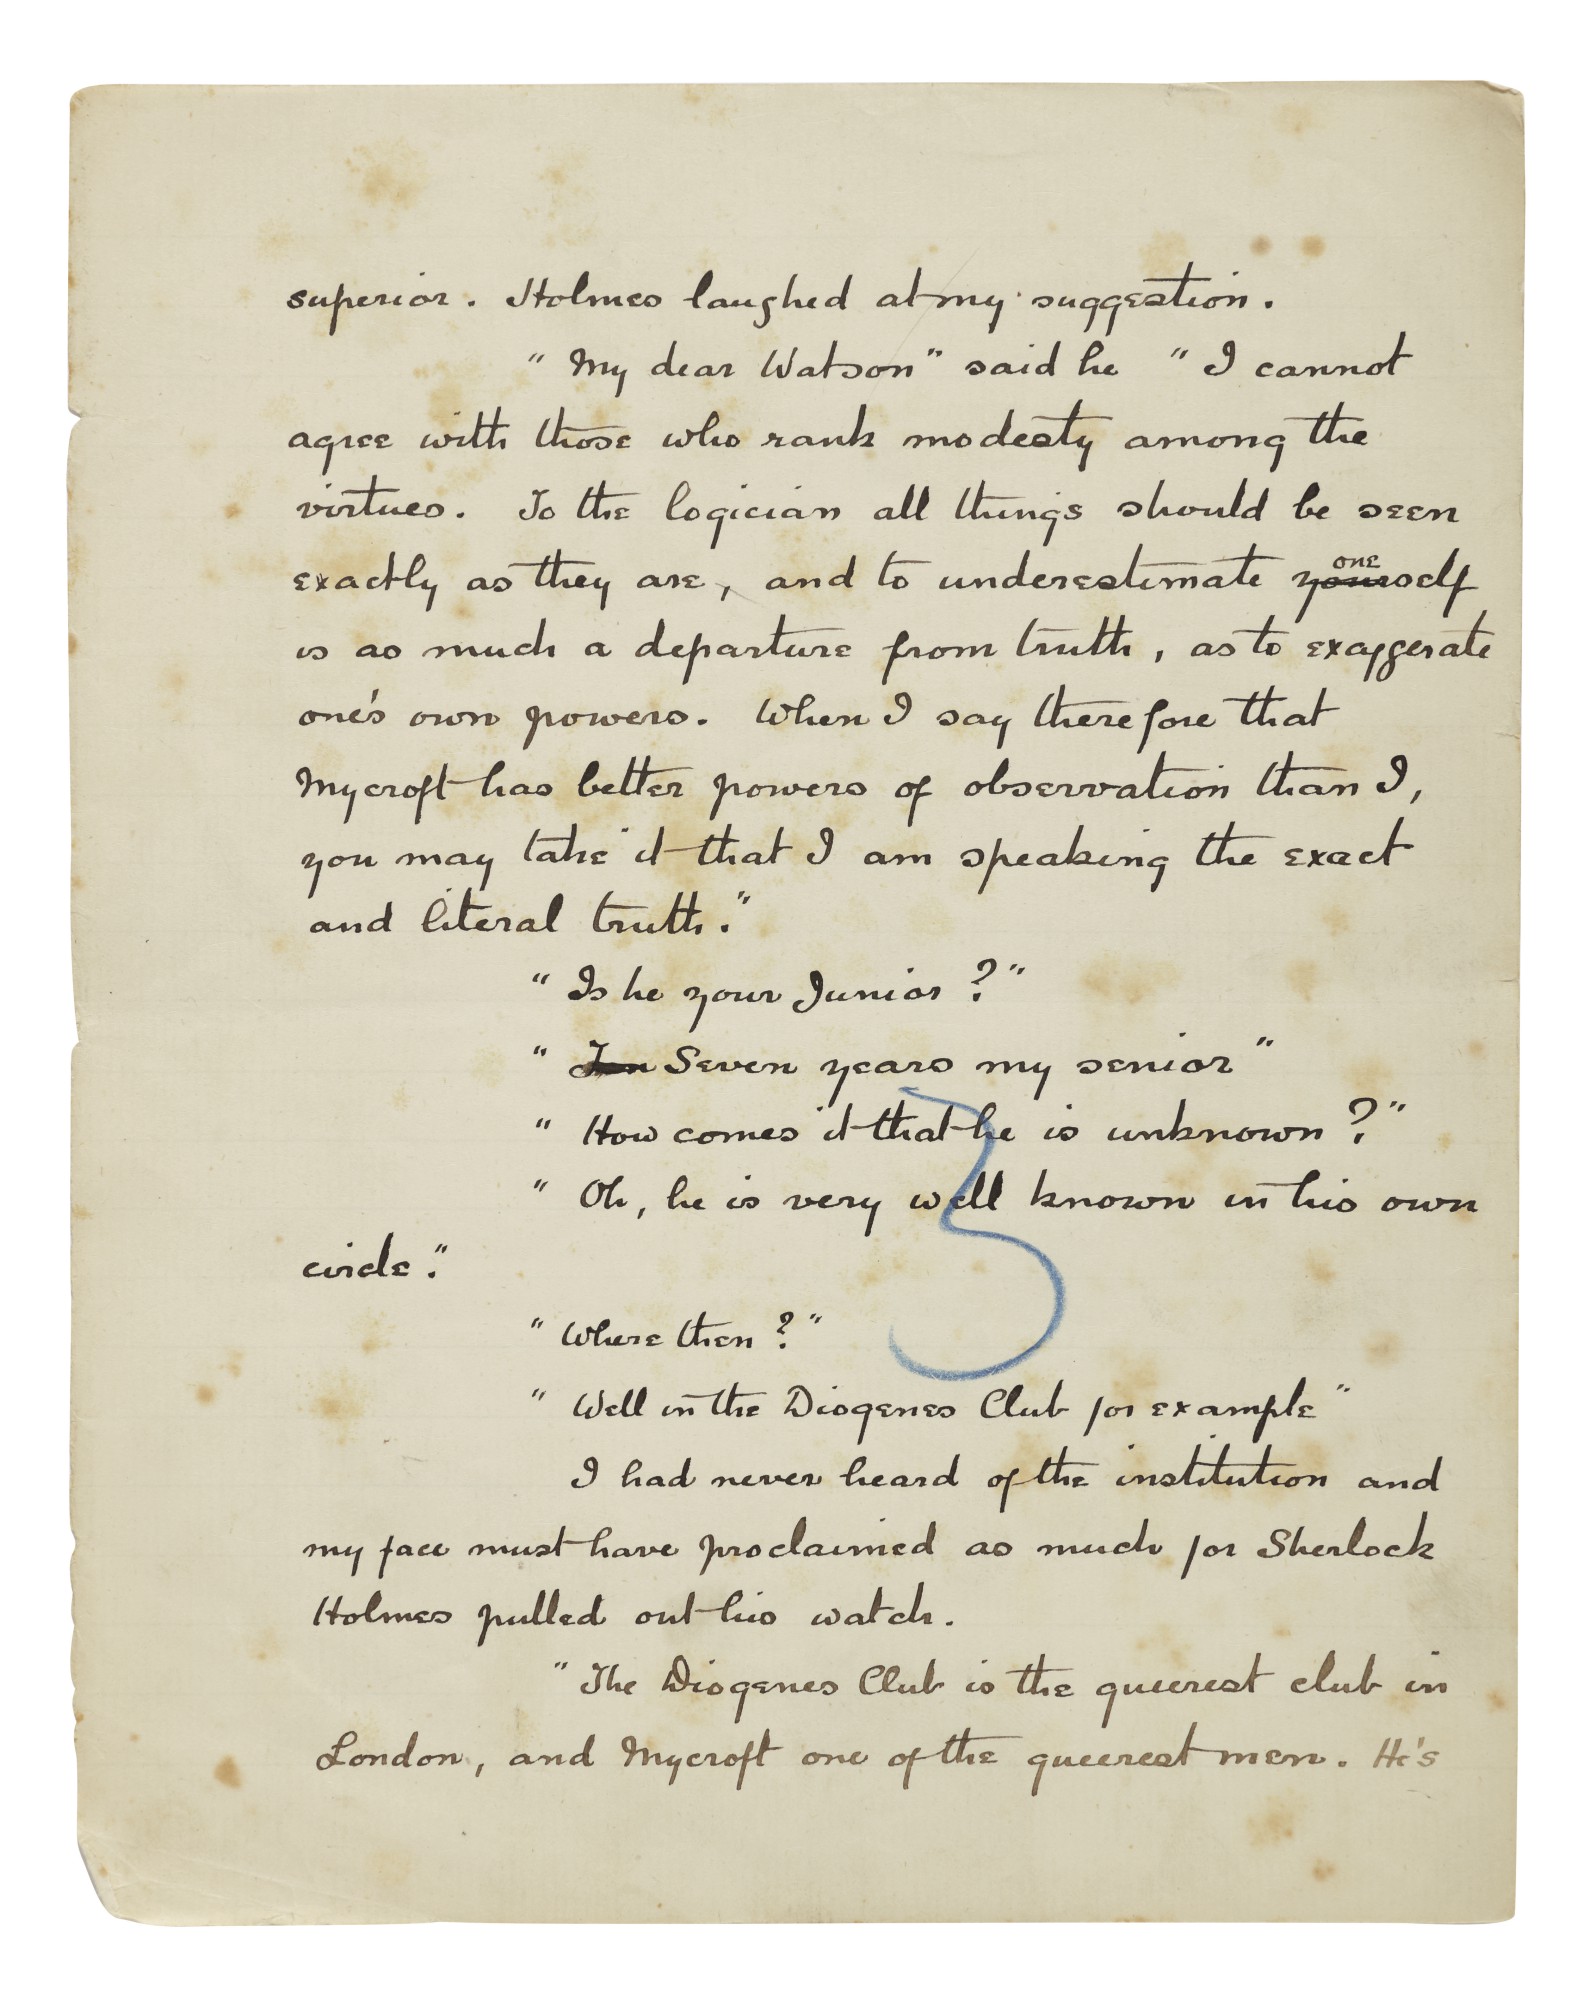 superior. Holmes laughed at my suggestion.
" My dear Watson" said he " I cannot
agree with those who rank modesty among the
virtues. To the logician all things should be seen
exactly as they are, and to underestimate yourself
one
is as much a departure from truth, as to exaggerate
one's own powers. When I say therefore that
Mycroft has better powers of observation than I,
you may take it that I am speaking the exact
and literal truth."
" Is he your Junior ?"
" Ten Seven years my senior "
" How comes it that he is unknown ?"
" Oh, he is very well known in his own
circle."
" Where then ? "
" Well in the Diogenes Club for example "
I had never heard of the institution and
my face must have proclaimed as much for Sherlock
Holmes pulled out his watch.
" The Diogenes Club is the queerest club in
London, and Mycroft one of the queerest men. He's
3